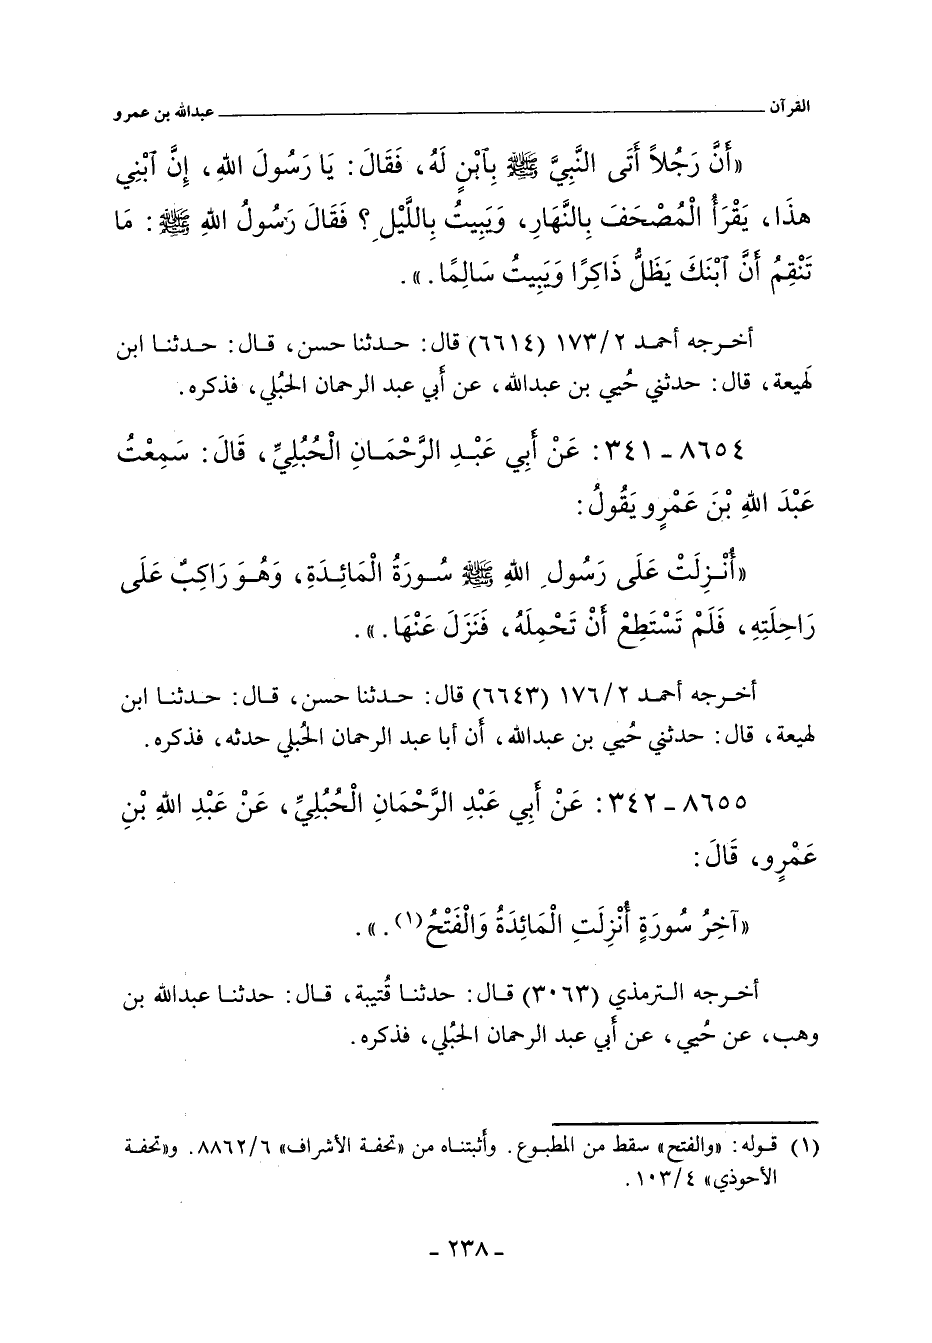 القرآن ــــــــــــــــــــــــــــــــ عبدالله بن عمرو
«أَنَّ رَجُلاً أَتَى النَّبِيَّ ﷺ بِٱبْنٍ لَهُ، فَقَالَ: يَا رَسُولَ اللهِ، إِنَّ ٱبْنِي
هذَا، يَقْرَأُ الْمُصْحَفَ بِالنَّهَارِ، وَيَبِيتُ بِاللَّيْلِ؟ فَقَالَ رَسُولُ اللهِ ﷺ: مَا
تَنْقِمُ أَنَّ ٱبْنَكَ يَظَلُّ ذَاكِرًا وَيَبِيتُ سَالِمًا.».
أخرجه أحمد ٢/ ١٧٣ (٦٦١٤) قال: حدثنا حسن، قال: حدثنا ابن
لَهيعة، قال: حدثني حُيي بن عبدالله، عن أَبي عبد الرحمان الحبُلي، فذكره.
٨٦٥٤ - ٣٤١: عَنْ أَبِي عَبْدِ الرَّحْمَانِ الْحُبُلِيِّ، قَالَ: سَمِعْتُ
عَبْدَ اللهِ بْنَ عَمْرٍو يَقُولُ:
«أُنْزِلَتْ عَلَى رَسُولِ اللهِ ﷺ سُورَةُ الْمَائِدَةِ، وَهُوَ رَاكِبٌ عَلَى
رَاحِلَتِهِ، فَلَمْ تَسْتَطِعْ أَنْ تَحْمِلَهُ، فَنَزَلَ عَنْهَا.».
أخرجه أحمد ٢/ ١٧٦ (٦٦٤٣) قال: حدثنا حسن، قال: حدثنا ابن
لهيعة، قال: حدثني حُيي بن عبدالله، أن أبا عبد الرحمان الحُبلي حدثه، فذكره.
٨٦٥٥ - ٣٤٢: عَنْ أَبِي عَبْدِ الرَّحْمَانِ الْحُبُلِيِّ، عَنْ عَبْدِ اللهِ بْنِ
عَمْرٍو، قَالَ:
«آخِرُ سُورَةٍ أُنْزِلَتِ الْمَائِدَةُ وَالْفَتْحُ(١).».
أخرجه الترمذي (٣٠٦٣) قال: حدثنا قُتيبة، قال: حدثنا عبدالله بن
وهب، عن حُيي، عن أَبي عبد الرحمان الحبُلي، فذكره.
(١) قوله: «والفتح» سقط من المطبوع. وأثبتناه من «تحفة الأشراف» ٦/ ٨٨٦٢. و«تحفة
الأحوذي» ٤/ ١٠٣.
- ٢٣٨ -